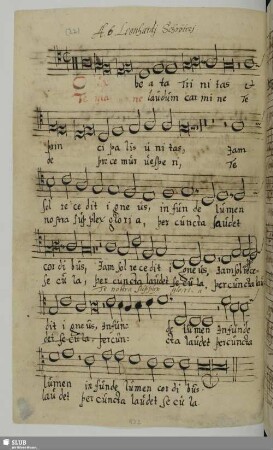 A. 6 Leonhardi Schröteri
O be a ta Tri ni tas et
Te ma ne laudum car mi ne Te
prin ci pa lis u ni tas, Jam
de pre ce mur vespe ri, Te
sol re ce dit i gne us, in fun de lumen
nostra supplex glori a, per cuncta laudet
cor di bus, Jam sol re ce dit igne us, Jam sol rece
se cu la, per cuncta laudet se cu la, per cuncta lau
dit i gne us, Infun de lumen Infunde
det se cu la, per cun cta laudet per cuncta
lumen in funde lumen cor di bus
lau det per cuncta laudet se cu la
SLUB